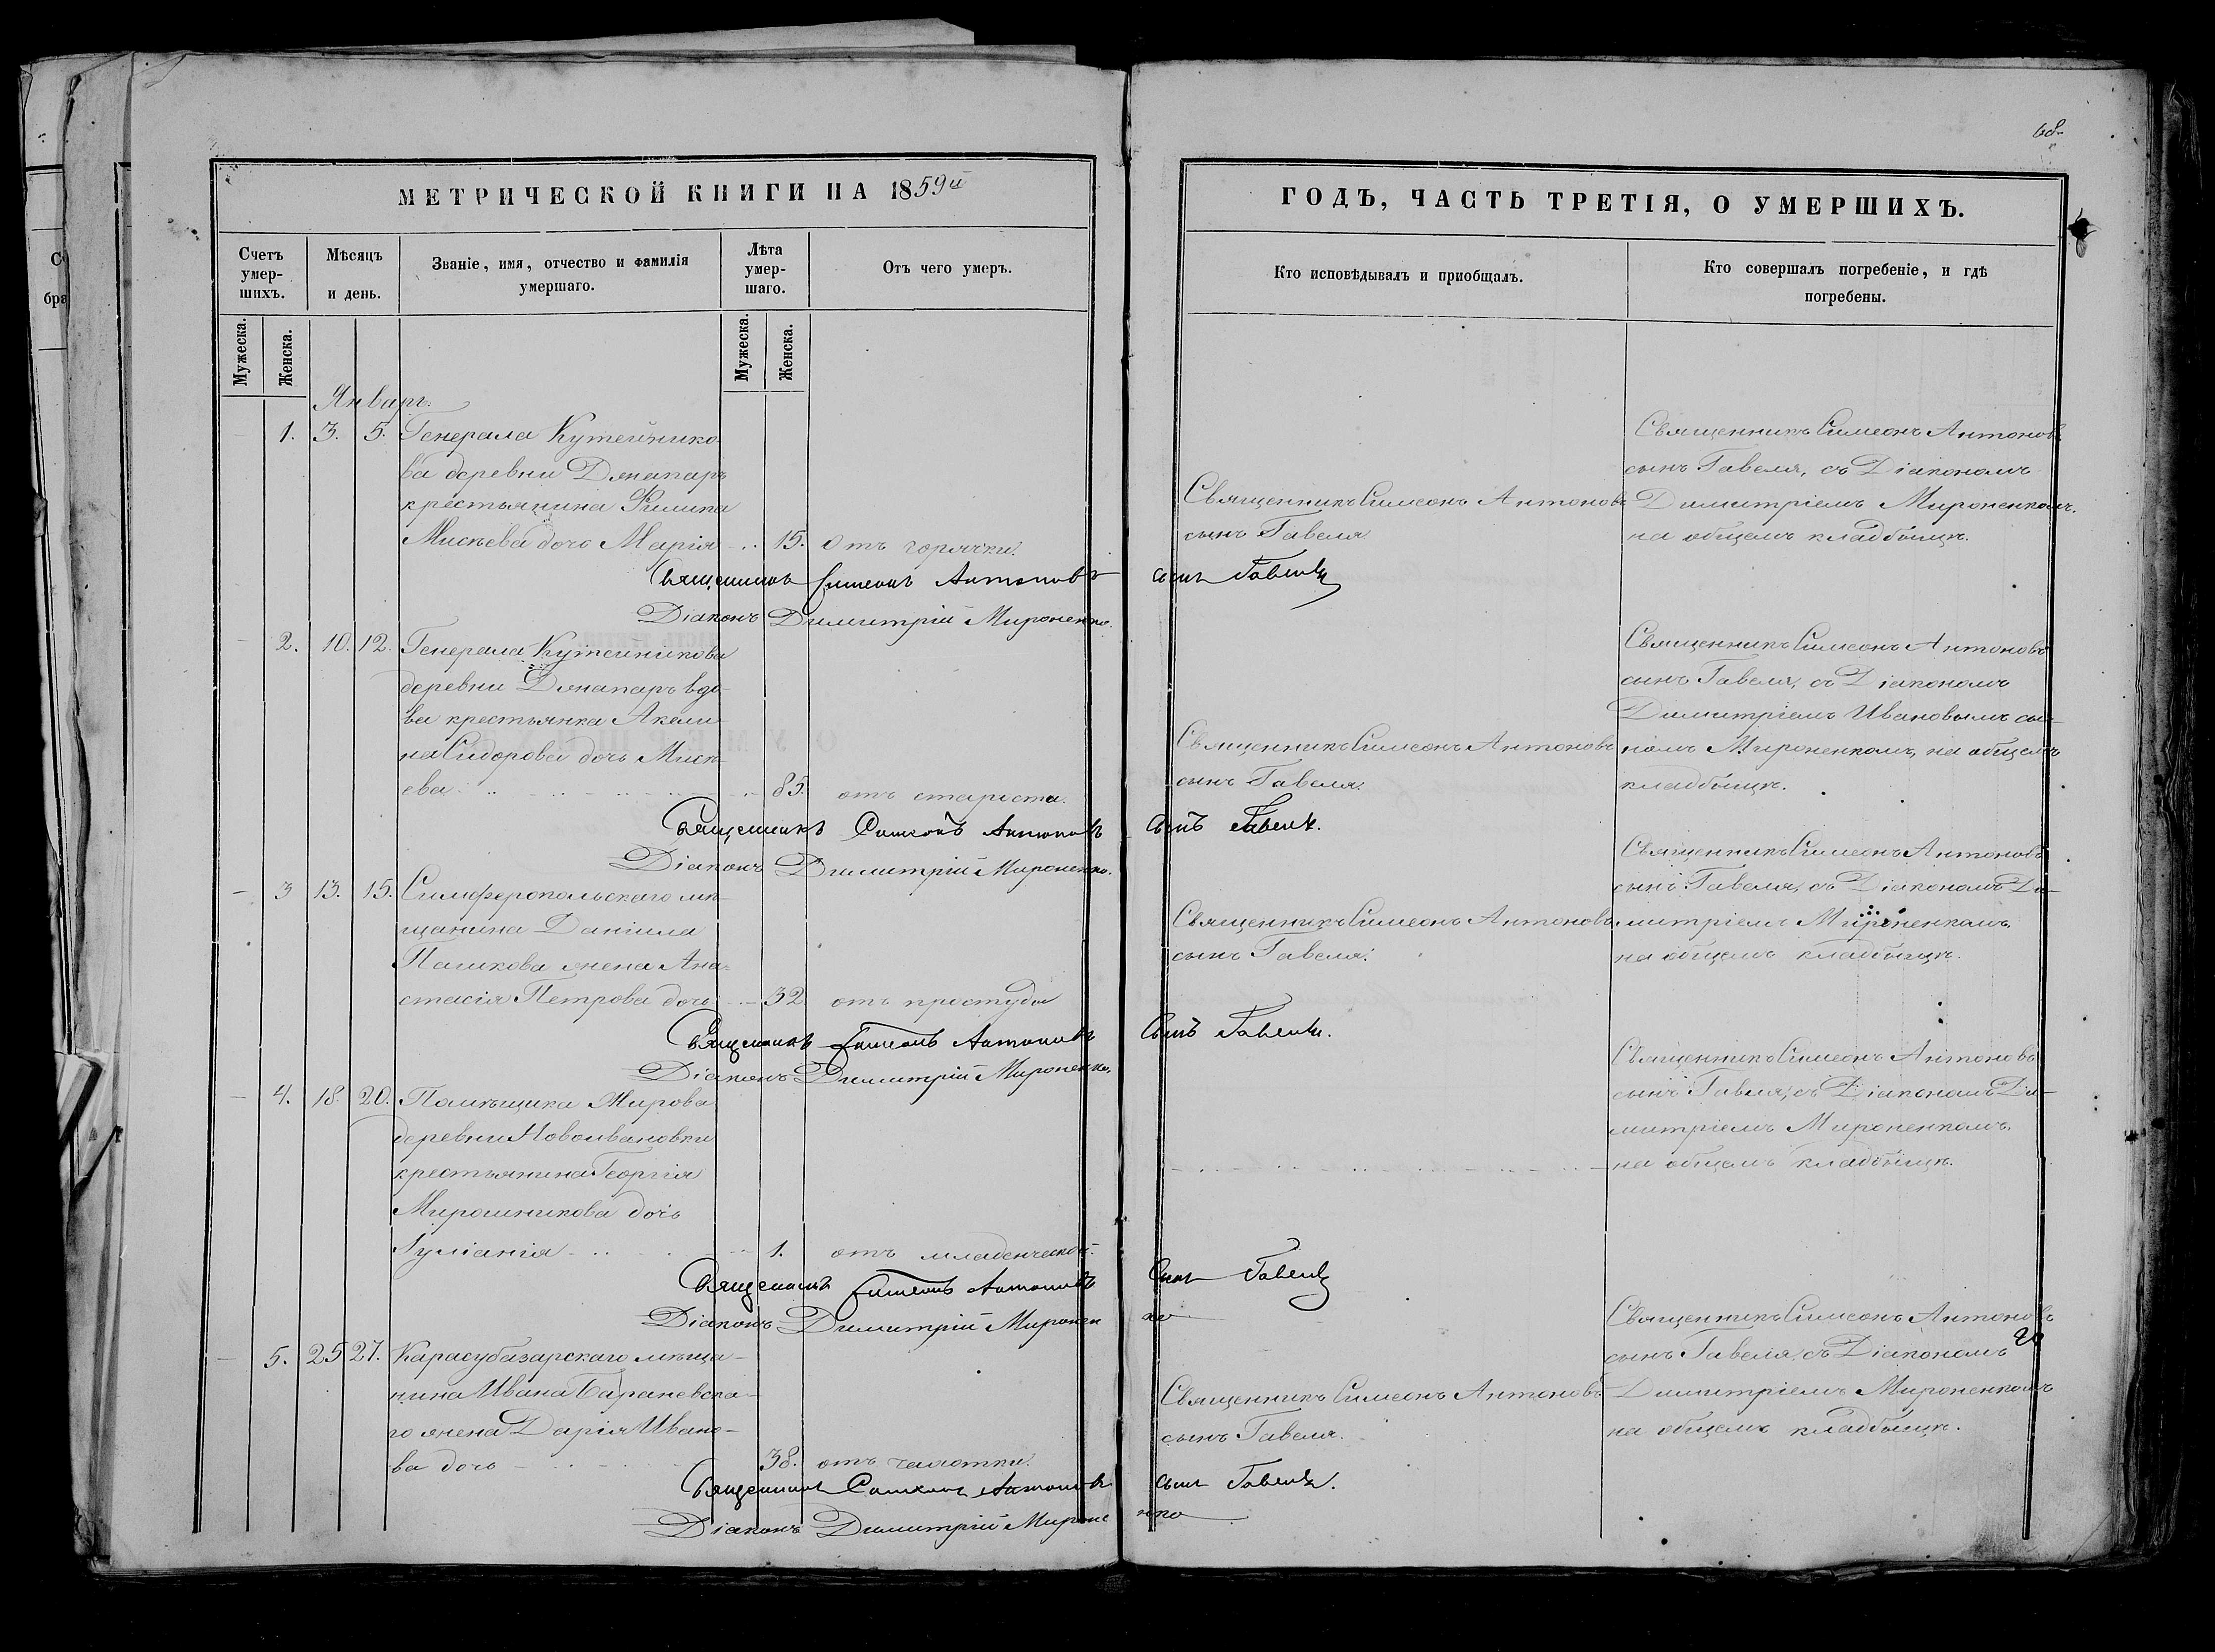 68.
МЕТРИЧЕСКОЙ КНИГИ НА 1859й
Счетъ умер-шихъ.
Мѣсяцъ и день.
Званіе, имя, отчество и фамилія умершаго.
Лѣта умер-шаго.
Отъ чего умеръ.
Мужеска.
Женска.
Мужеска.
Женска.
Январь.
1. 3. 5. Генерала Кутейнико-
ва деревни Джапаръ
крестьянина Филипа
Мисѣева дочь Марія 15. отъ горячки.
Священникъ Симеонъ Антоновъ
Діаконъ Димитрій Мироненко.
2. 10. 12. Генерала Кутейникова
деревни Джапаръ вдо-
ва крестьянка Акели-
на Сидорова дочь Мисѣ-
ева 85. отъ старости.
Священникъ Симеонъ Антоновъ
Діаконъ Димитрій Мироненко.
3 13. 15. Симферопольскаго мѣ-
щанина Даніила
Пашкова жена Ана-
стасія Петрова дочь 32. отъ простуды
Священникъ Симеонъ Антоновъ
Діаконъ Димитрій Мироненко.
4. 18. 20. Помѣщика Мирова
деревни Новоивановки
крестьянина Георгія
Мирошникова дочь
Іуліанія 1. отъ младенческой.
Священникъ Симеонъ Антоновъ
Діаконъ Димитрій Миронен
5. 25 27. Карасубазарскаго мѣща-
нина Ивана Барановска-
го жена Дарія Ивано-
ва дочь 38. отъ чахотки.
Священникъ Симеонъ Антоновъ
Діаконъ Димитрій Мироне
ГОДЪ, ЧАСТЬ ТРЕТІЯ, О УМЕРШИХЪ.
Кто исповѣдывалъ и приобщалъ.
Кто совершалъ погребеніе, и гдѣ
погребены.
Священникъ Симеонъ Антоновъ
сынъ Гавеля
Священникъ Симеонъ Антоновъ
сынъ Гавеля, съ Діакономъ
Димитріемъ Мироненкомъ.
на общемъ кладбищѣ.
сынъ Гавеля
Священникъ Симеонъ Антоновъ
сынъ Гавеля.
Священникъ Симеонъ Антоновъ
сынъ Гавеля, съ Діакономъ
Димитріемъ Ивановымъ сы-
номъ Мироненкомъ, на общемъ
кладбищѣ.
сынъ Гавеля.
Священникъ Симеонъ Антоновъ
сынъ Гавеля.
Священникъ Симеонъ Антоновъ
сынъ Гавеля, съ Діакономъ Ди-
митріемъ Мироненкомъ.
на общемъ кладбищѣ.
сынъ Гавеля.
Священникъ Симеонъ Антоновъ
сынъ Гавеля, съ Діакономъ Ди-
митріемъ Мироненкомъ.
на общемъ кладбищѣ.
сынъ Гавеля
ко
Священникъ Симеонъ Антоновъ
сынъ Гавеля.
Священникъ Симеонъ Антоновъ
сынъ Гавеля, съ Діакономъ
Димитріемъ Мироненкомъ
на общемъ кладбищѣ.
сынъ Гавеля.
нко